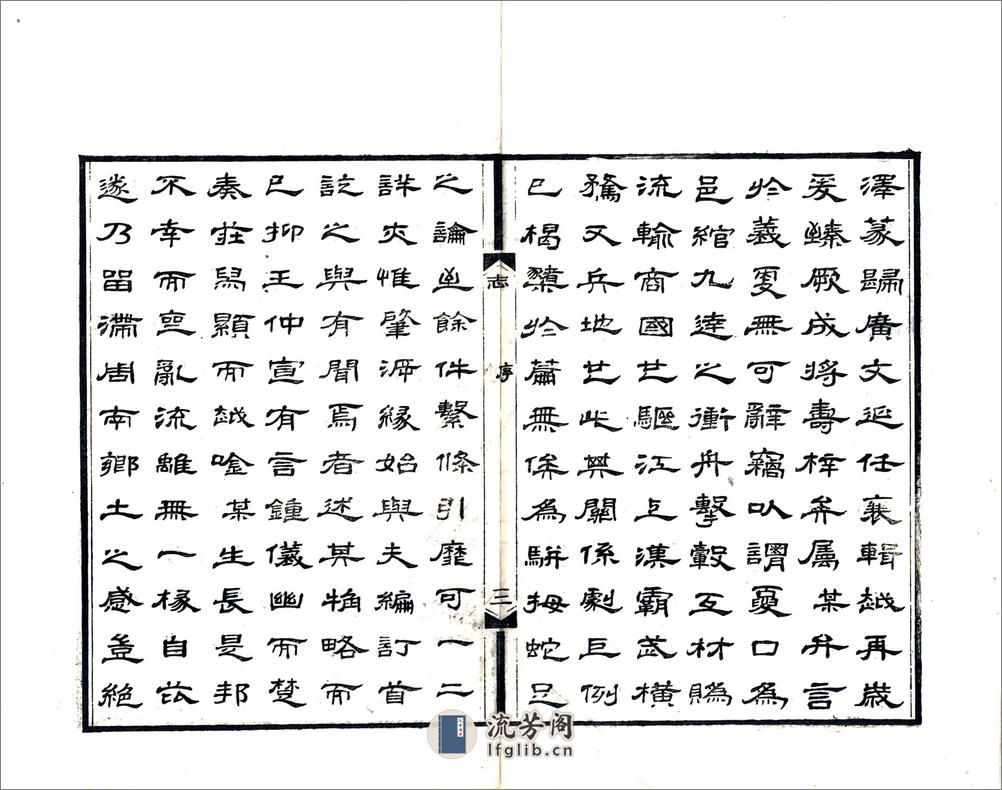 澤篆歸廣文延任襄輯越再歲
爰臻厥成将壽梓并属某弁言
於義無可辭竊以謂夏口為
邑綰九逵之衝舟擊轂互材賄
流輸商國也驅江漢霸武橫
騖又兵地也此其關係劇巨例
已楬櫫於篇無俟為駢拇蛇足
志 序 三
之論並餘件繫條引靡可一二
詳夾惟肇源緣始與夫編訂首
訖之與有聞焉者述其觕略而
已抑王仲宣有言鍾儀幽而楚
奏莊舄顯而越唫某生長是邦
不幸而亂流離無一椽自芘
遂乃留滯周南鄉土之感豈絕
流芳阁
lfglib.cn